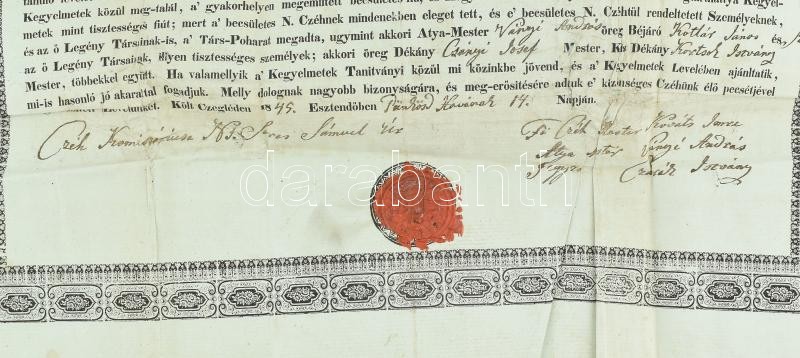 Kegyelmetek közül meg-talál, a' gyakorhelyen megemlitett becsületes
metek mint tisztességes fiút; mert a' becsületes N. Czéhnek mindenekben eleget tett, és e' becsületes N. Czéhtül rendeltetett Személyeknek,
és az ö Legény Társainak-is, a' Társ-Poharat megadta, ugymint akkori Atya-Mester Ványi András öreg Béjáró Kotlár János és,
az ö Legény Társaink, illyen tisztességes személyek; akkori öreg Dékány Czányi Josef Mester, Kis Dékány István
Mester, többekkel együtt. Ha valamellyik a' Kegyelmetek Tanitványi közül mi közinkbe jövend, és a' Kegyelmetek Levelében ajánltatik,
mi-is hasonló jó akarattal fogadjuk. Melly dolognak nagyobb bizonyságára, és meg-erösitésére adtuk e' közönséges Czéhünk élö pecsétjével
Költ Czegléden 1845. Esztendöben Pünkösd Havának 14. Napján.
Czéh Komisáriusa Seres Sámuel Úr
Fő Czéh Mester Kováts Imre
Atya mester Ványi András
István
darabanth